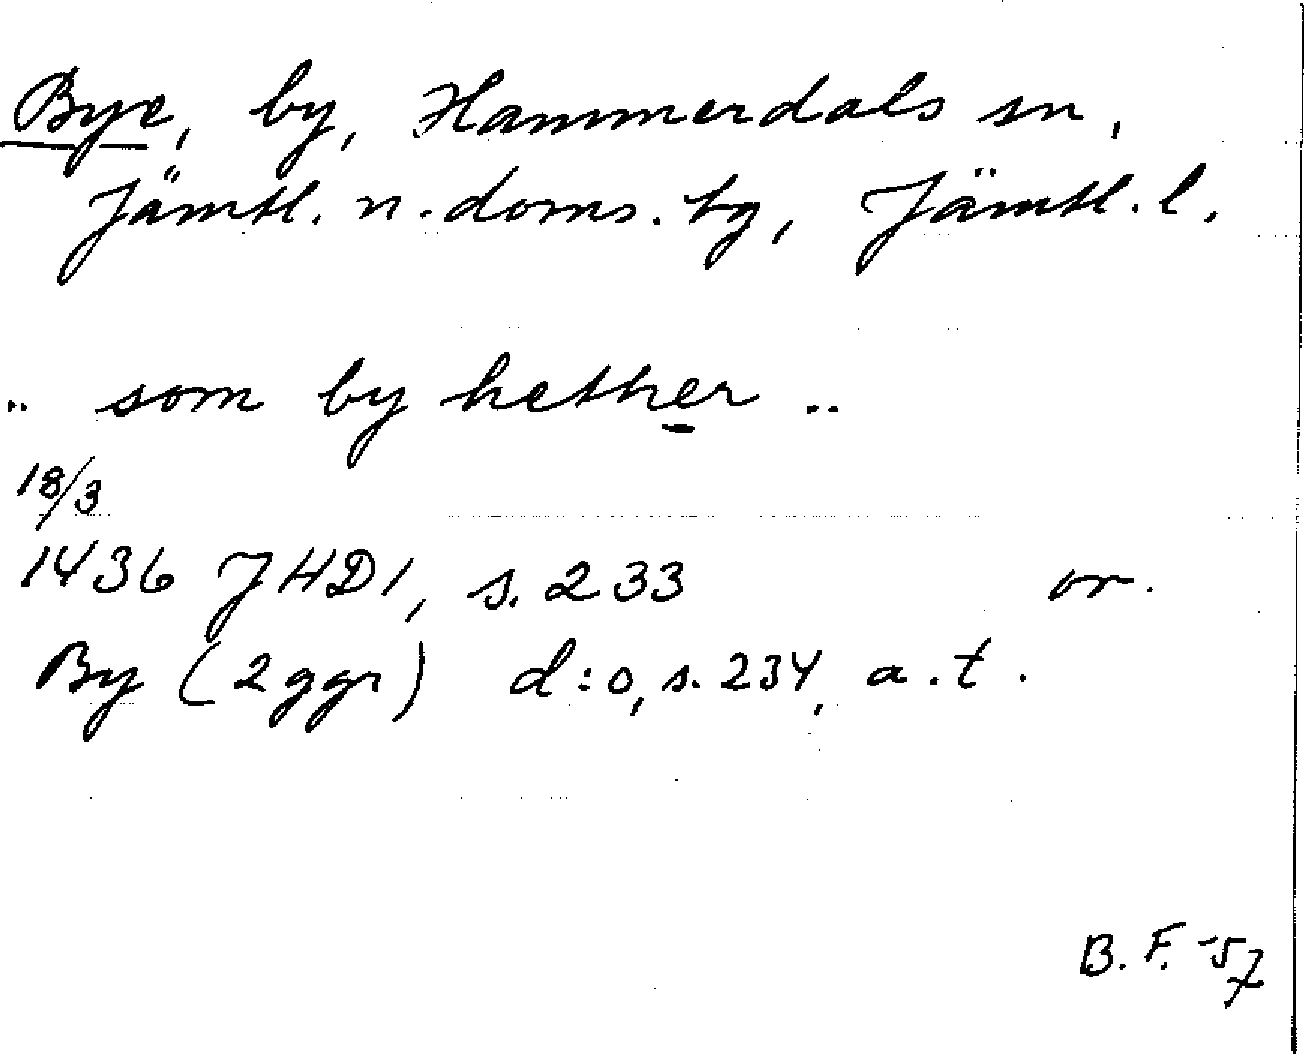 Bye, by, Hammerdals sn,
Jämtl. n. doms. tg, Jämtl. l.
.. som by hether ..
18/3
1436 JHD1, s. 233 or.
By (2 ggr) d:o, s. 234, a.t.
B.F. -57